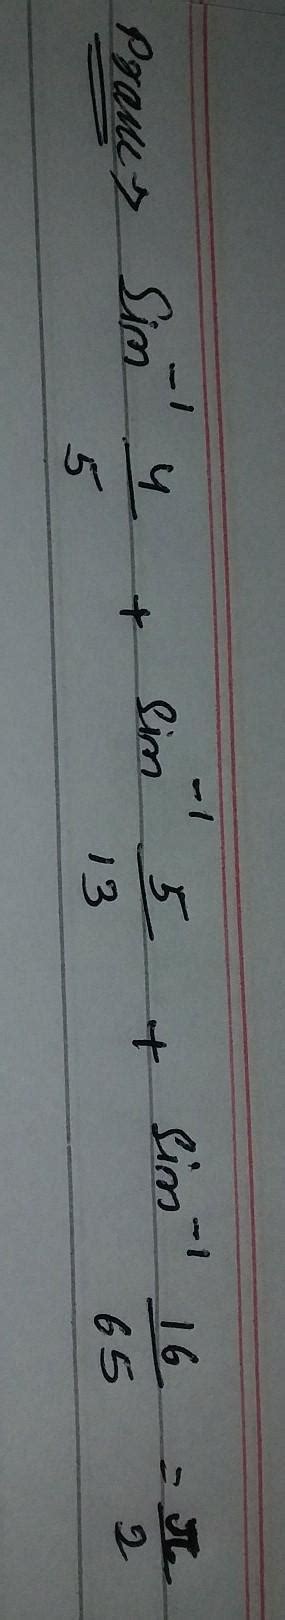 Prove → Sin⁻¹ 4/5 + Sin⁻¹ 5/13 + Sin⁻¹ 16/65 = π/2